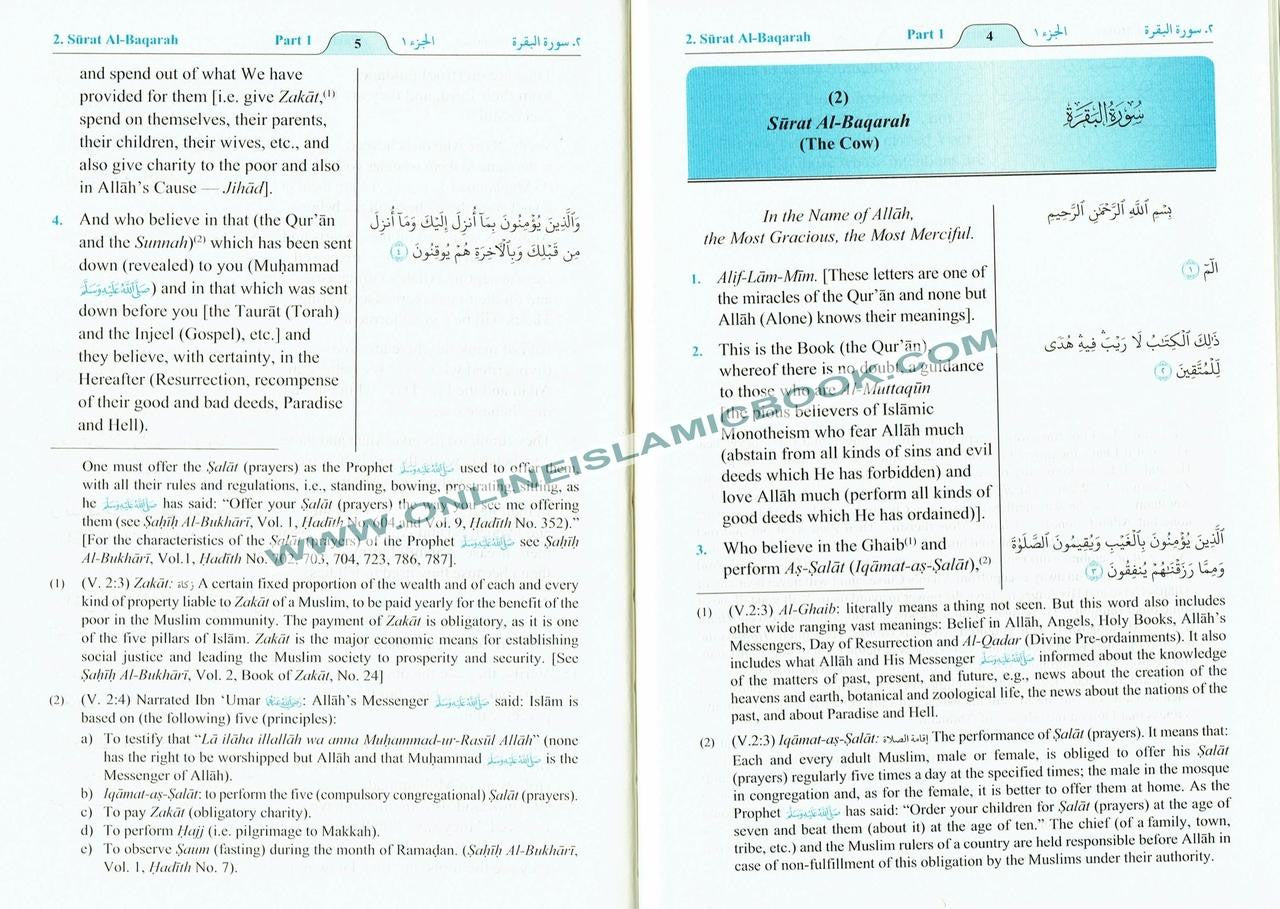 2. Sūrat Al-Baqarah Part 1 4 الجزء ١ ٢. سورة البقرة
(2)
Sūrat Al-Baqarah
(The Cow)
سُورَةُ البَقَرَةِ
In the Name of Allāh,
the Most Gracious, the Most Merciful.
بِسْمِ ٱللَّهِ ٱلرَّحْمَٰنِ ٱلرَّحِيمِ
1. Alif-Lām-Mīm. [These letters are one of
the miracles of the Qur’ān and none but
Allāh (Alone) knows their meanings].
الٓمٓ ١
2. This is the Book (the Qur’ān),
whereof there is no doubt, a guidance
to those who are Al-Muttaqūn
[the pious believers of Islāmic
Monotheism who fear Allāh much
(abstain from all kinds of sins and evil
deeds which He has forbidden) and
love Allāh much (perform all kinds of
good deeds which He has ordained)].
ذَٰلِكَ ٱلْكِتَٰبُ لَا رَيْبَ ۛ فِيهِ ۛ هُدًى
لِّلْمُتَّقِينَ ٢
3. Who believe in the Ghaib(1) and
perform Aṣ-Ṣalāt (Iqāmat-aṣ-Ṣalāt),(2)
ٱلَّذِينَ يُؤْمِنُونَ بِٱلْغَيْبِ وَيُقِيمُونَ ٱلصَّلَوٰةَ
وَمِمَّا رَزَقْنَٰهُمْ يُنفِقُونَ ٣
(1) (V.2:3) Al-Ghaib: literally means a thing not seen. But this word also includes
other wide ranging vast meanings: Belief in Allāh, Angels, Holy Books, Allāh’s
Messengers, Day of Resurrection and Al-Qadar (Divine Pre-ordainments). It also
includes what Allāh and His Messenger صلى الله عليه وسلم informed about the knowledge
of the matters of past, present, and future, e.g., news about the creation of the
heavens and earth, botanical and zoological life, the news about the nations of the
past, and about Paradise and Hell.
(2) (V.2:3) Iqāmat-aṣ-Ṣalāt: إقامة الصلاة The performance of Ṣalāt (prayers). It means that:
Each and every adult Muslim, male or female, is obliged to offer his Ṣalāt
(prayers) regularly five times a day at the specified times; the male in the mosque
in congregation and, as for the female, it is better to offer them at home. As the
Prophet صلى الله عليه وسلم has said: “Order your children for Ṣalāt (prayers) at the age of
seven and beat them (about it) at the age of ten.” The chief (of a family, town,
tribe, etc.) and the Muslim rulers of a country are held responsible before Allāh in
case of non-fulfillment of this obligation by the Muslims under their authority.
2. Sūrat Al-Baqarah Part 1 5 الجزء ١ ٢. سورة البقرة
and spend out of what We have
provided for them [i.e. give Zakāt,(1)
spend on themselves, their parents,
their children, their wives, etc., and
also give charity to the poor and also
in Allāh’s Cause — Jihād].
4. And who believe in that (the Qur’ān
and the Sunnah)(2) which has been sent
down (revealed) to you (Muḥammad
صلى الله عليه وسلم) and in that which was sent
down before you [the Taurāt (Torah)
and the Injeel (Gospel), etc.] and
they believe, with certainty, in the
Hereafter (Resurrection, recompense
of their good and bad deeds, Paradise
and Hell).
وَٱلَّذِينَ يُؤْمِنُونَ بِمَآ أُنزِلَ إِلَيْكَ وَمَآ أُنزِلَ
مِن قَبْلِكَ وَبِٱلْءَاخِرَةِ هُمْ يُوقِنُونَ ٤
One must offer the Ṣalāt (prayers) as the Prophet صلى الله عليه وسلم used to offer them,
with all their rules and regulations, i.e., standing, bowing, prostrating, sitting, as
he صلى الله عليه وسلم has said: “Offer your Ṣalāt (prayers) the way you see me offering
them (see Ṣaḥīḥ Al-Bukhārī, Vol. 1, Ḥadīth No. 604 and Vol. 9, Ḥadīth No. 352).”
[For the characteristics of the Ṣalāt (prayers) of the Prophet صلى الله عليه وسلم see Ṣaḥīḥ
Al-Bukhārī, Vol.1, Ḥadīth No. 702, 703, 704, 723, 786, 787].
(1) (V. 2:3) Zakāt: زكاة A certain fixed proportion of the wealth and of each and every
kind of property liable to Zakāt of a Muslim, to be paid yearly for the benefit of the
poor in the Muslim community. The payment of Zakāt is obligatory, as it is one
of the five pillars of Islām. Zakāt is the major economic means for establishing
social justice and leading the Muslim society to prosperity and security. [See
Ṣaḥīḥ Al-Bukhārī, Vol. 2, Book of Zakāt, No. 24]
(2) (V. 2:4) Narrated Ibn ‘Umar رضي الله عنهما: Allāh’s Messenger صلى الله عليه وسلم said: Islām is
based on (the following) five (principles):
a) To testify that “Lā ilāha illallāh wa anna Muḥammad-ur-Rasūl Allāh” (none
has the right to be worshipped but Allāh and that Muḥammad صلى الله عليه وسلم is the
Messenger of Allāh).
b) Iqāmat-aṣ-Ṣalāt: to perform the five (compulsory congregational) Ṣalāt (prayers).
c) To pay Zakāt (obligatory charity).
d) To perform Ḥajj (i.e. pilgrimage to Makkah).
e) To observe Ṣaum (fasting) during the month of Ramaḍan. (Ṣaḥīḥ Al-Bukhārī,
Vol. 1, Ḥadīth No. 7).
WWW.ONLINEISLAMICBOOK.COM